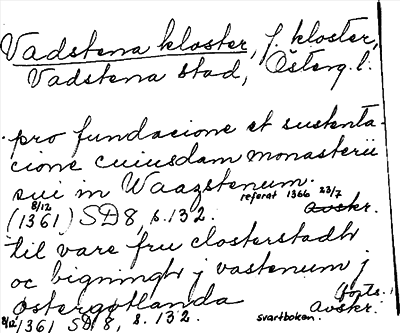 Vadstena kloster, f. kloster,
Vadstena stad, Österg. l.
pro fundacione et sustenta-
cione cuiusdam monasterii
sui in Waazstenum.
referat 1366 23/7
8/12
(1361) SD 8, s. 132. Avskr.
til vare fru closterstadh
oc bigningh j vastenum j
östergötlanda (forts.)
8/12 1361 SD 8, s. 132. svartboken. Avskr.